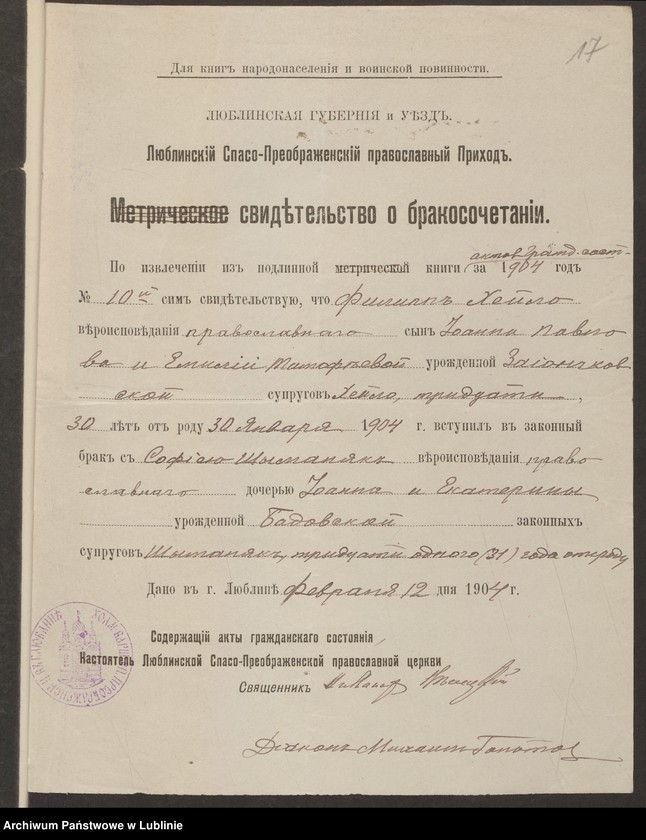 17
Для книгъ народонаселенія и воинской повинности.
ЛЮБЛИНСКАЯ ГУБЕРНІЯ и УѢЗДЪ.
Люблинскій Спасо-Преображенскій православный Приходъ.
Метрическое свидѣтельство о бракосочетаніи.
актов гражд. сост-
По извлеченіи изъ подлинной метрической книги за 1904 годъ
№ 10 сим свидѣтельствую, что Филиппъ Хейло
вѣроисповѣданія православнаго сынъ Іоанна Павло
ва и Емиліи урожденной Заіончков
ской супруговъ Хейло, тридцати,
30 лѣтъ отъ роду 30 Января 1904 г. вступилъ въ законный
бракъ съ Софіею Шыманякъ вѣроисповѣданія право
славнаго дочерью Іоанна и Екатерины
урожденной Бадовской законныхъ
супруговъ Шыманякъ, тридцати одного (31) года отроду
Дано въ г. Люблинѣ Февраля 12 дня 1904 г.
Содержащій акты гражданскаго состоянія
Настоятель Люблинской Спасо-Преображенской православной церкви
Священникъ
Діаконъ Михаилъ
Archiwum Państwowe w Lublinie